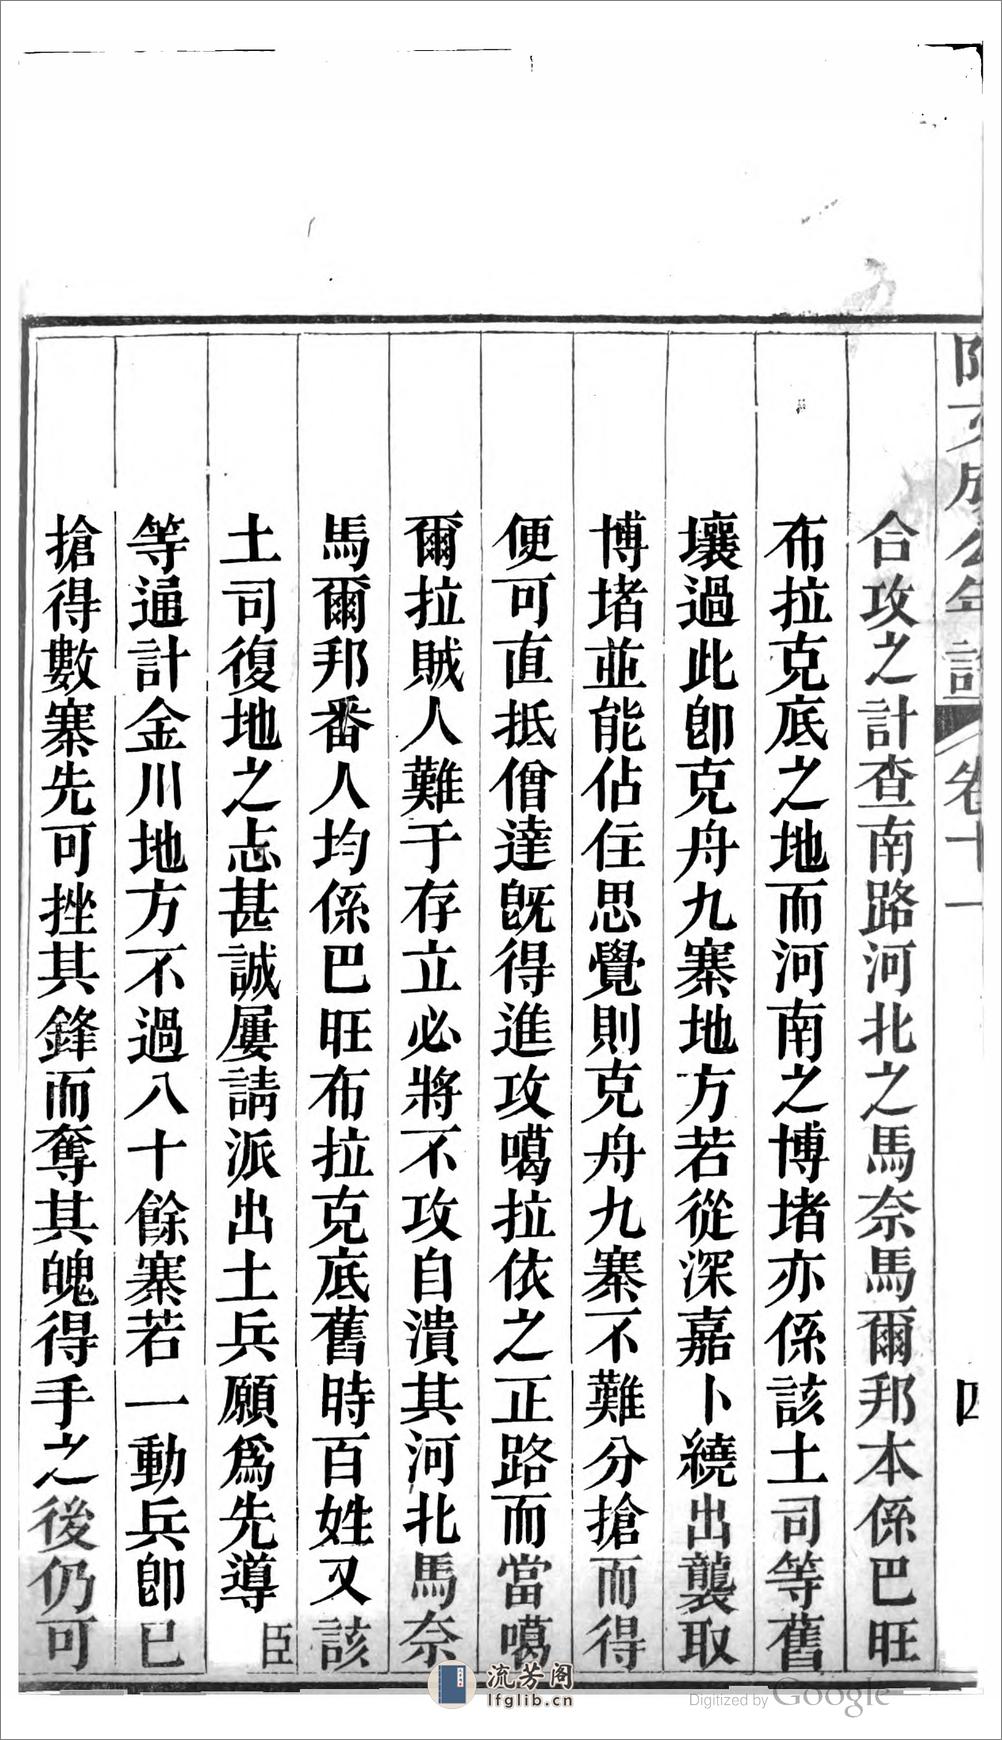 阿文成公年譜 卷十一 四
合攻之計查南路河北之馬奈馬爾邦本係巴旺
布拉克底之地而河南之博堵亦係該土司等舊
壤過此卽克舟九寨地方若從深嘉卜繞出襲取
博堵並能佔住思覺則克舟九寨不難分搶而得
便可直抵僧達旣得進攻噶拉依之正路而當噶
爾拉賊人難于存立必將不攻自潰其河北馬奈
馬爾邦番人均係巴旺布拉克底舊時百姓又該
土司復地之志甚誠屢請派出土兵願爲先導臣
等通計金川地方不過八十餘寨若一動兵卽已
搶得數寨先可挫其鋒而奪其魄得手之後仍可
流芳阁
lfglib.cn
Digitized by Google